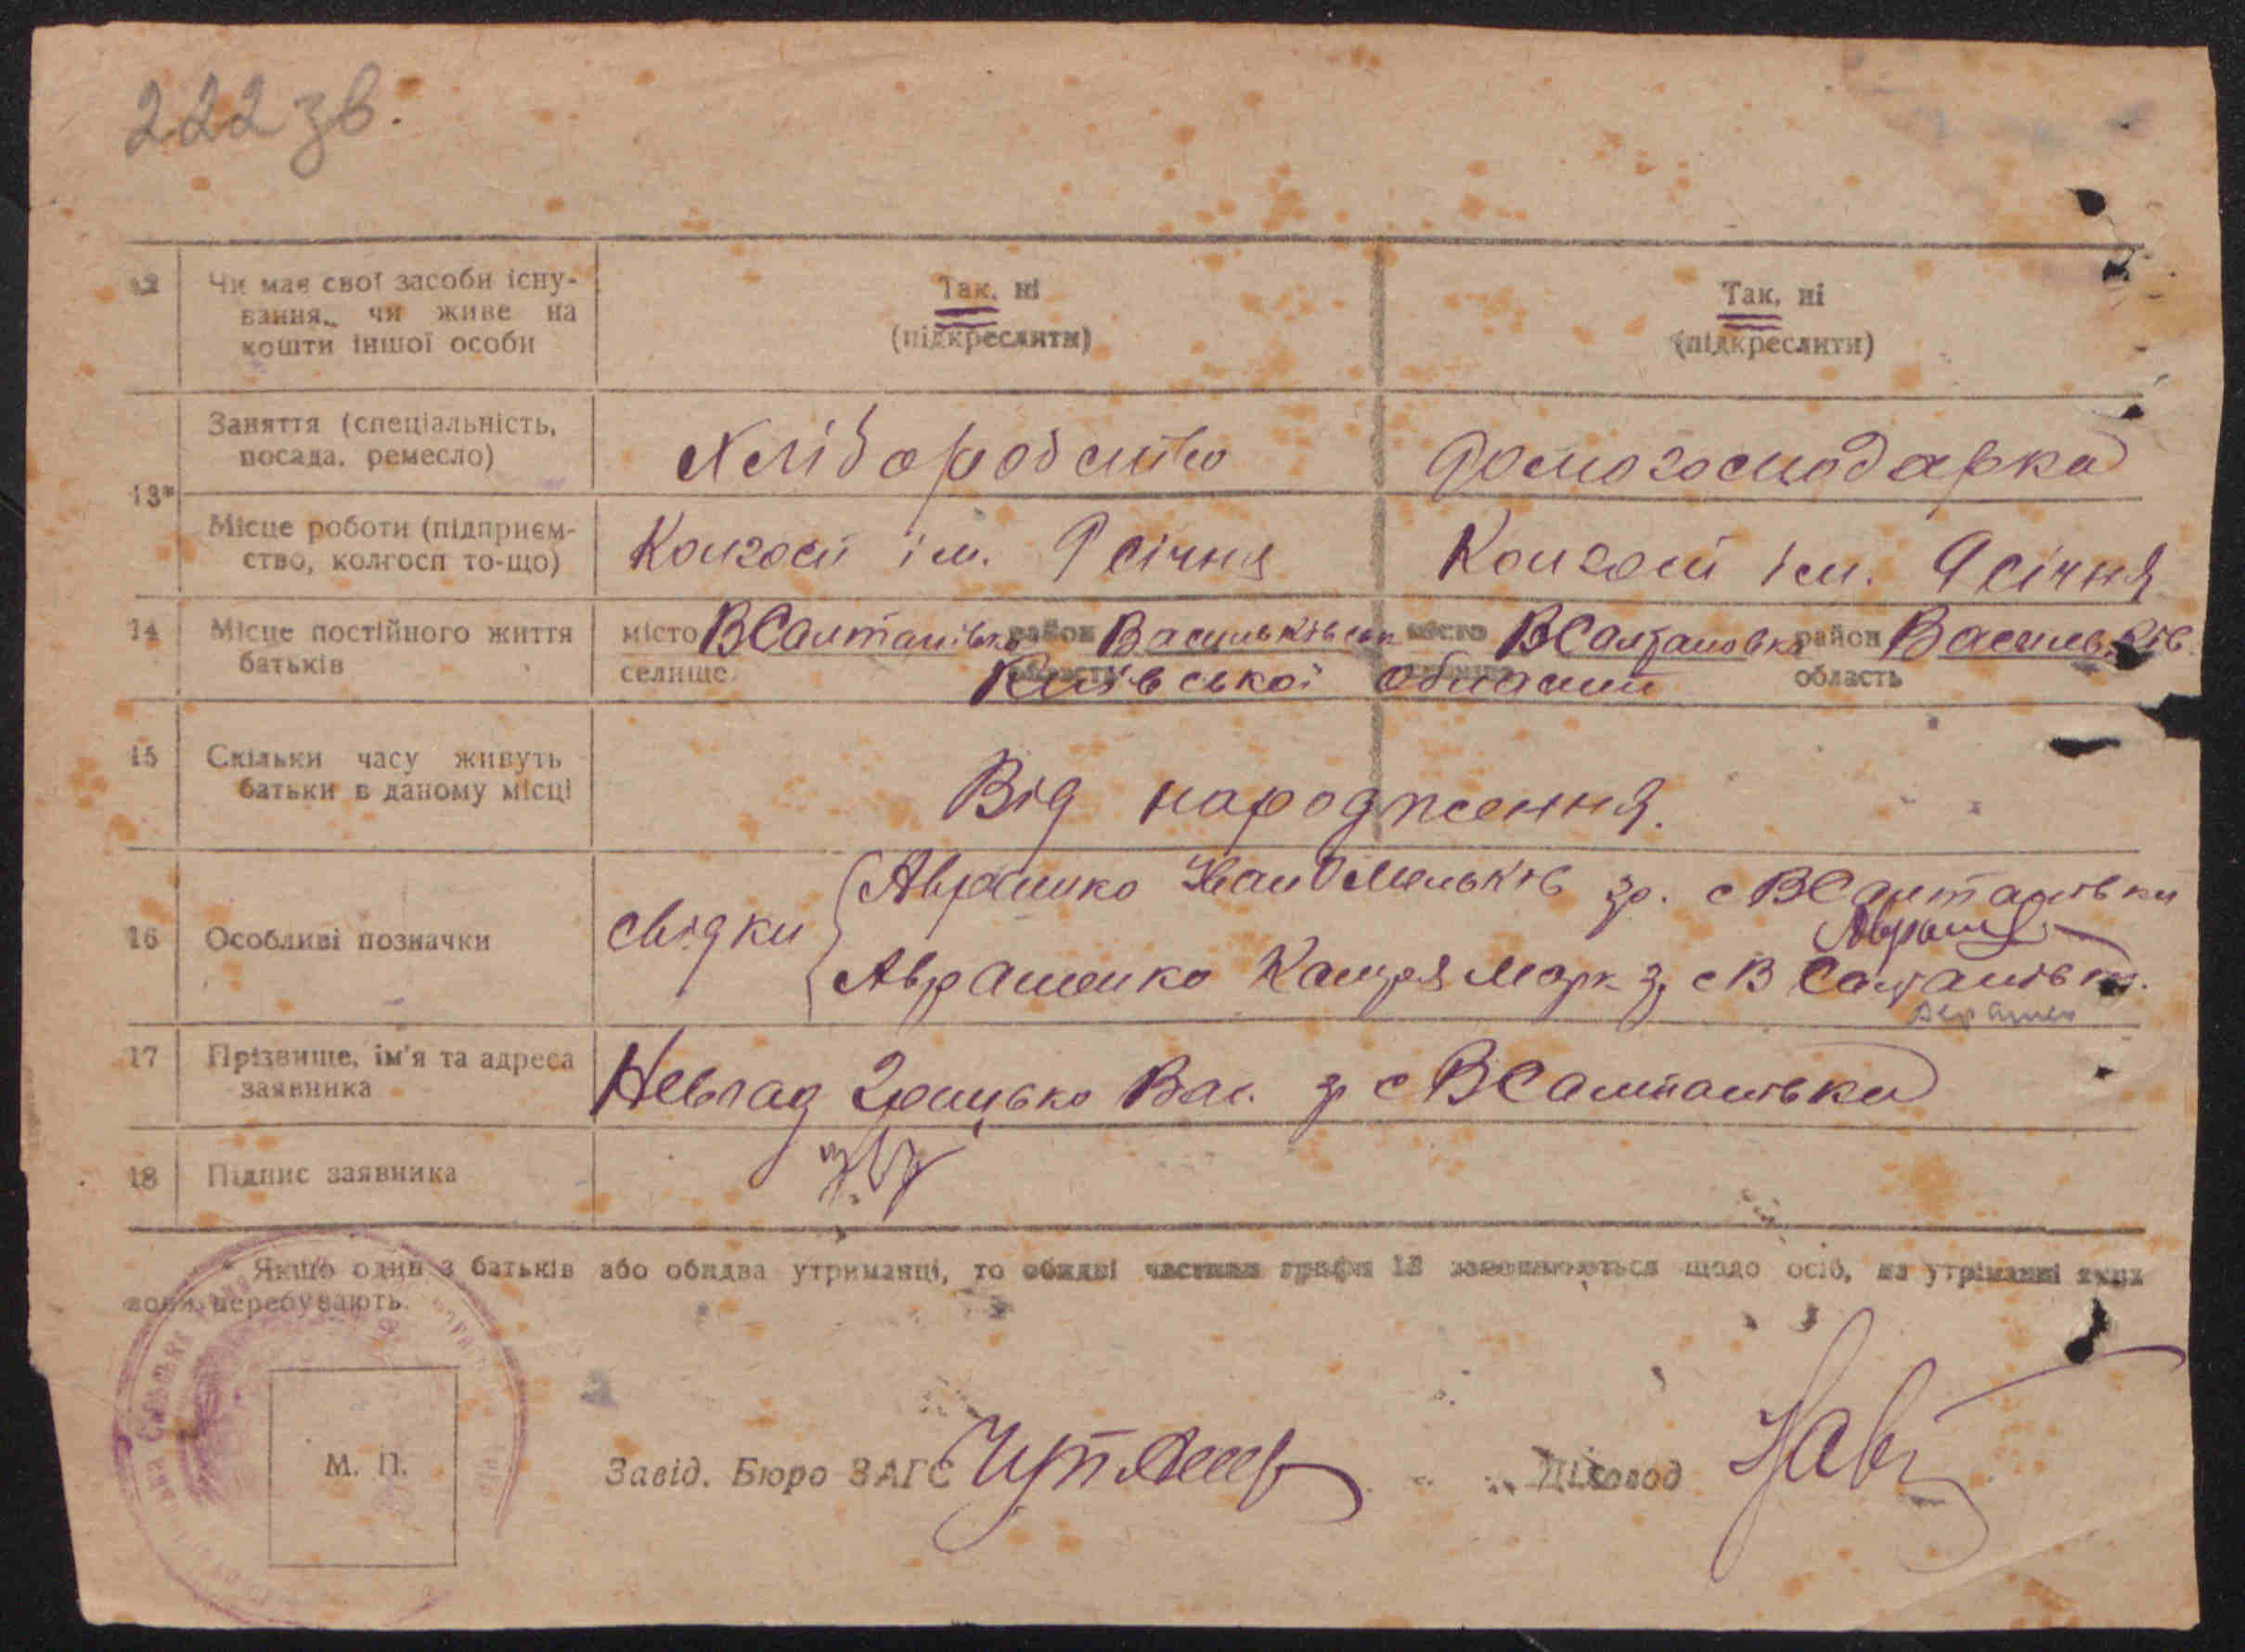 222 зв.
12 Чи має свої засоби існу-
вання, чи живе на
кошти іншої особи
Так, ні
(підкреслити)
Так, ні
(підкреслити)
13*
Заняття (спеціальність,
посада, ремесло)
Хліборобство
Домогосподарка
Місце роботи (підприєм-
ство, колгосп то-що)
Колгосп ім. 9 січня
Колгосп ім. 9 січня
14 Місце постійного життя
батьків
місто ВСалтанівка район Васильківськ
селище Київської області
місто ВСалтановка район Васильків
область
15 Скільки часу живуть
батьки в даному місці
Від народження.
16 Особливі позначки
свідки
Аврашко Іван Омельків гр. с ВСалтанівки
Авраш
Аврашенко Марк гр с В Салтанівки.
17 Прізвище, ім'я та адреса
заявника
Невлад Грицько Вас. гр с ВСалтанівки
18 Підпис заявника
* Якщо один з батьків або обидва утриманці, то обидві частини графи 13 заповнюються щодо осіб, на утриманні яких
вони перебувають.
М. П.
Завід. Бюро ЗАГС
Діловод